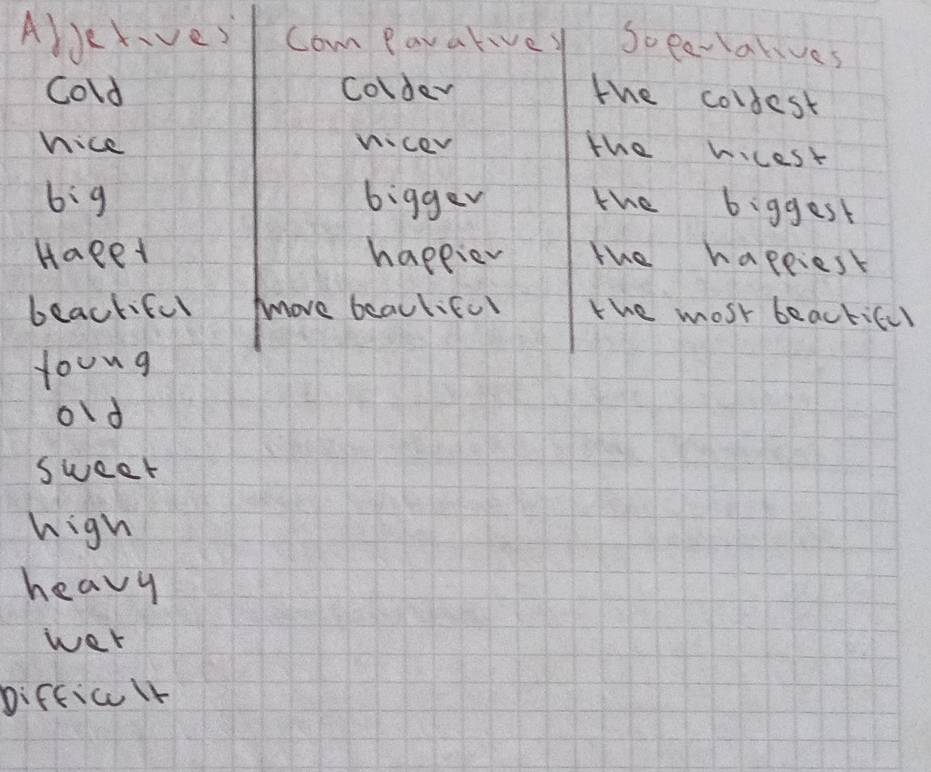 Adjetives Comparatives Superlatives
Cold Colder the coldest
nice nicer the nicest
big bigger the biggest
Happy happier the happiest
beautiful more beautiful the most beautiful
Young
old
sweet
high
heavy
wet
Difficult